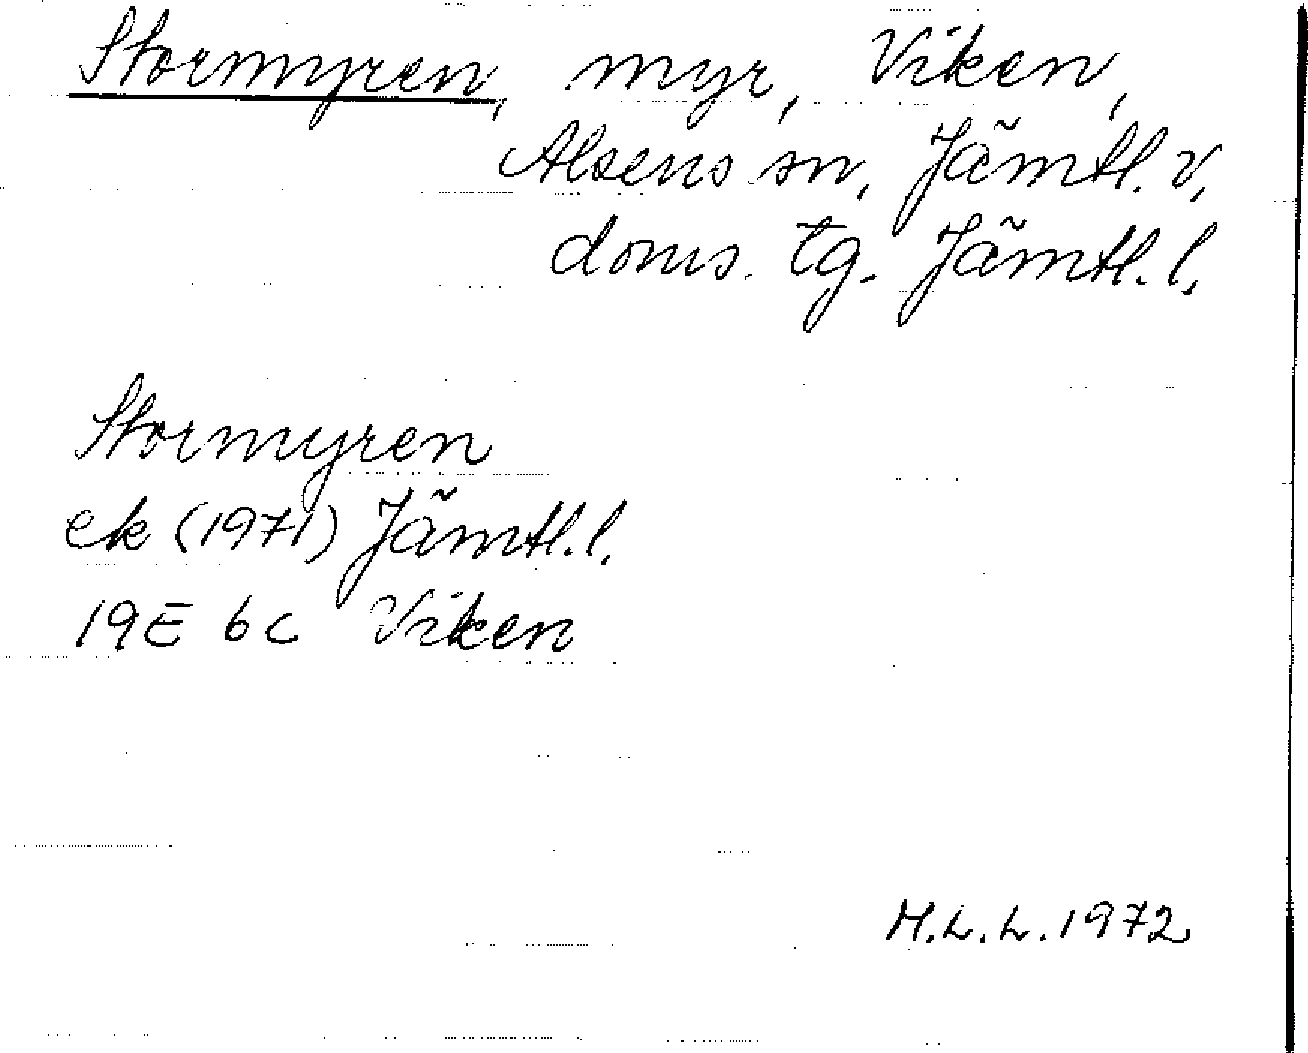 Stormyren, myr, Viken,
Alsens sn, Jämtl. v.
doms. tg. Jämtl. l.
Stormyren
ek (1971) Jämtl. l.
19E 6c Viken
M.L.L. 1972